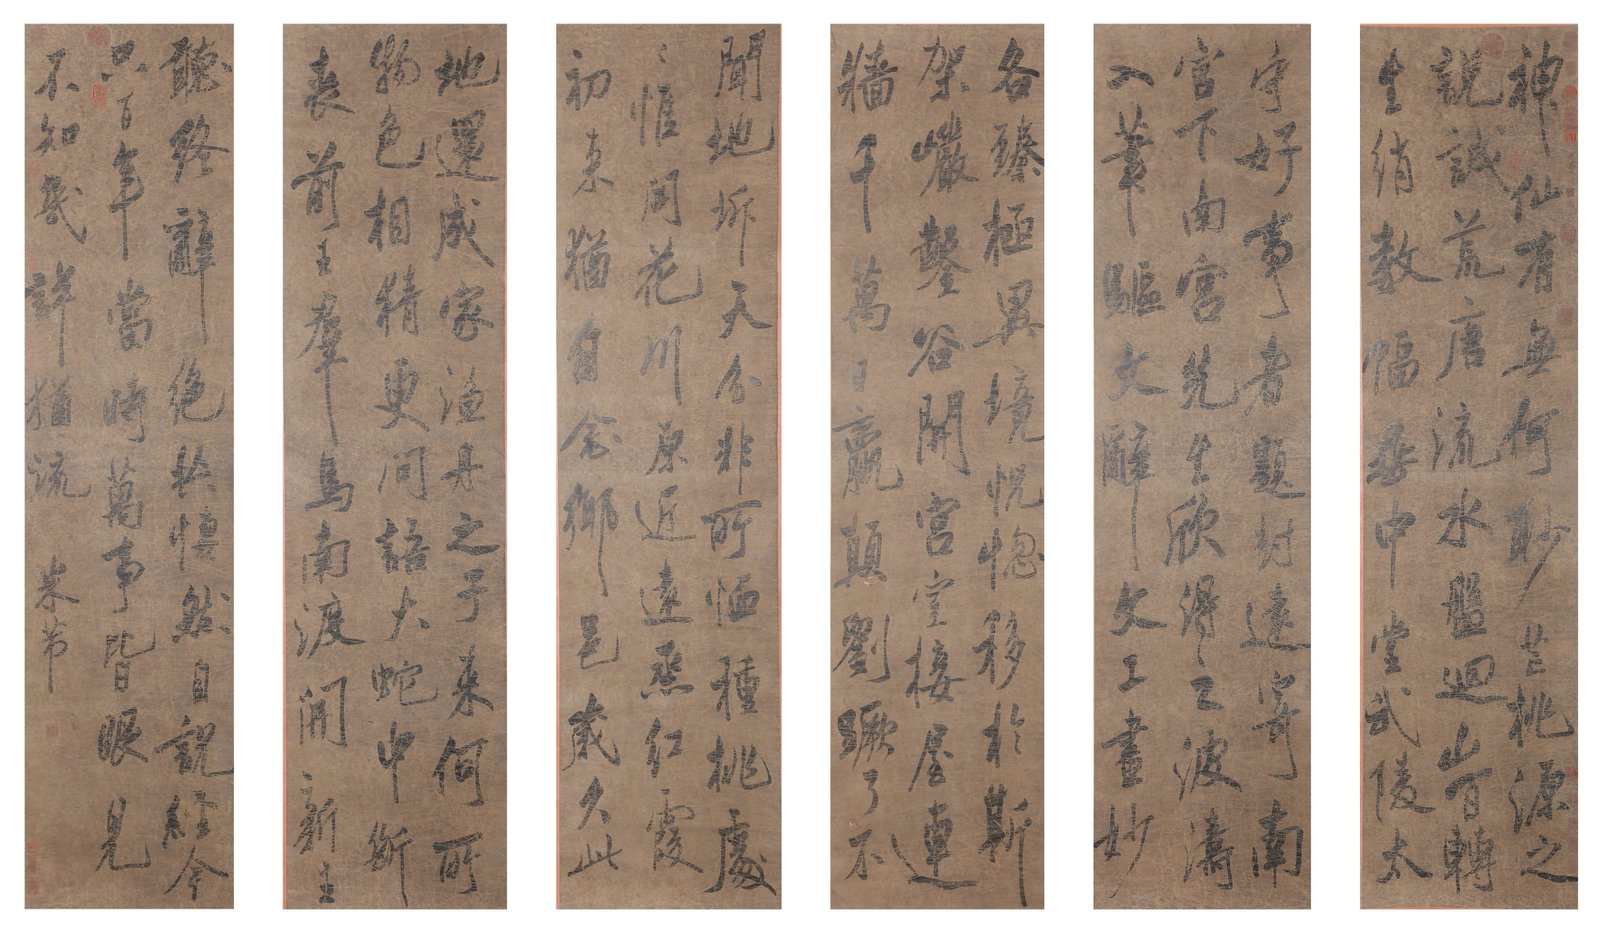 神仙有無何眇芒桃源之
說誠荒唐流水盤迴山百轉
生綃數幅垂中堂武陵太
守好事者題封遠寄南
宮下南宮先生欣得之波濤
入筆驅文辭文工畫妙
各臻極異境恍惚移於斯
架巖鑿谷開宮室接屋連
牆千萬日嬴顛劉蹶了不
聞地坼天分非所恤種桃處
〻惟開花川原近遠烝紅霞
初來猶自念鄉邑歲久此
地還成家漁舟之子來何所
物色相猜更問語大蛇中斷
喪前王羣馬南渡開新主
聽終辭絕共悽然自說經今
六百年當時萬事皆眼見
不知幾許猶流 米芾